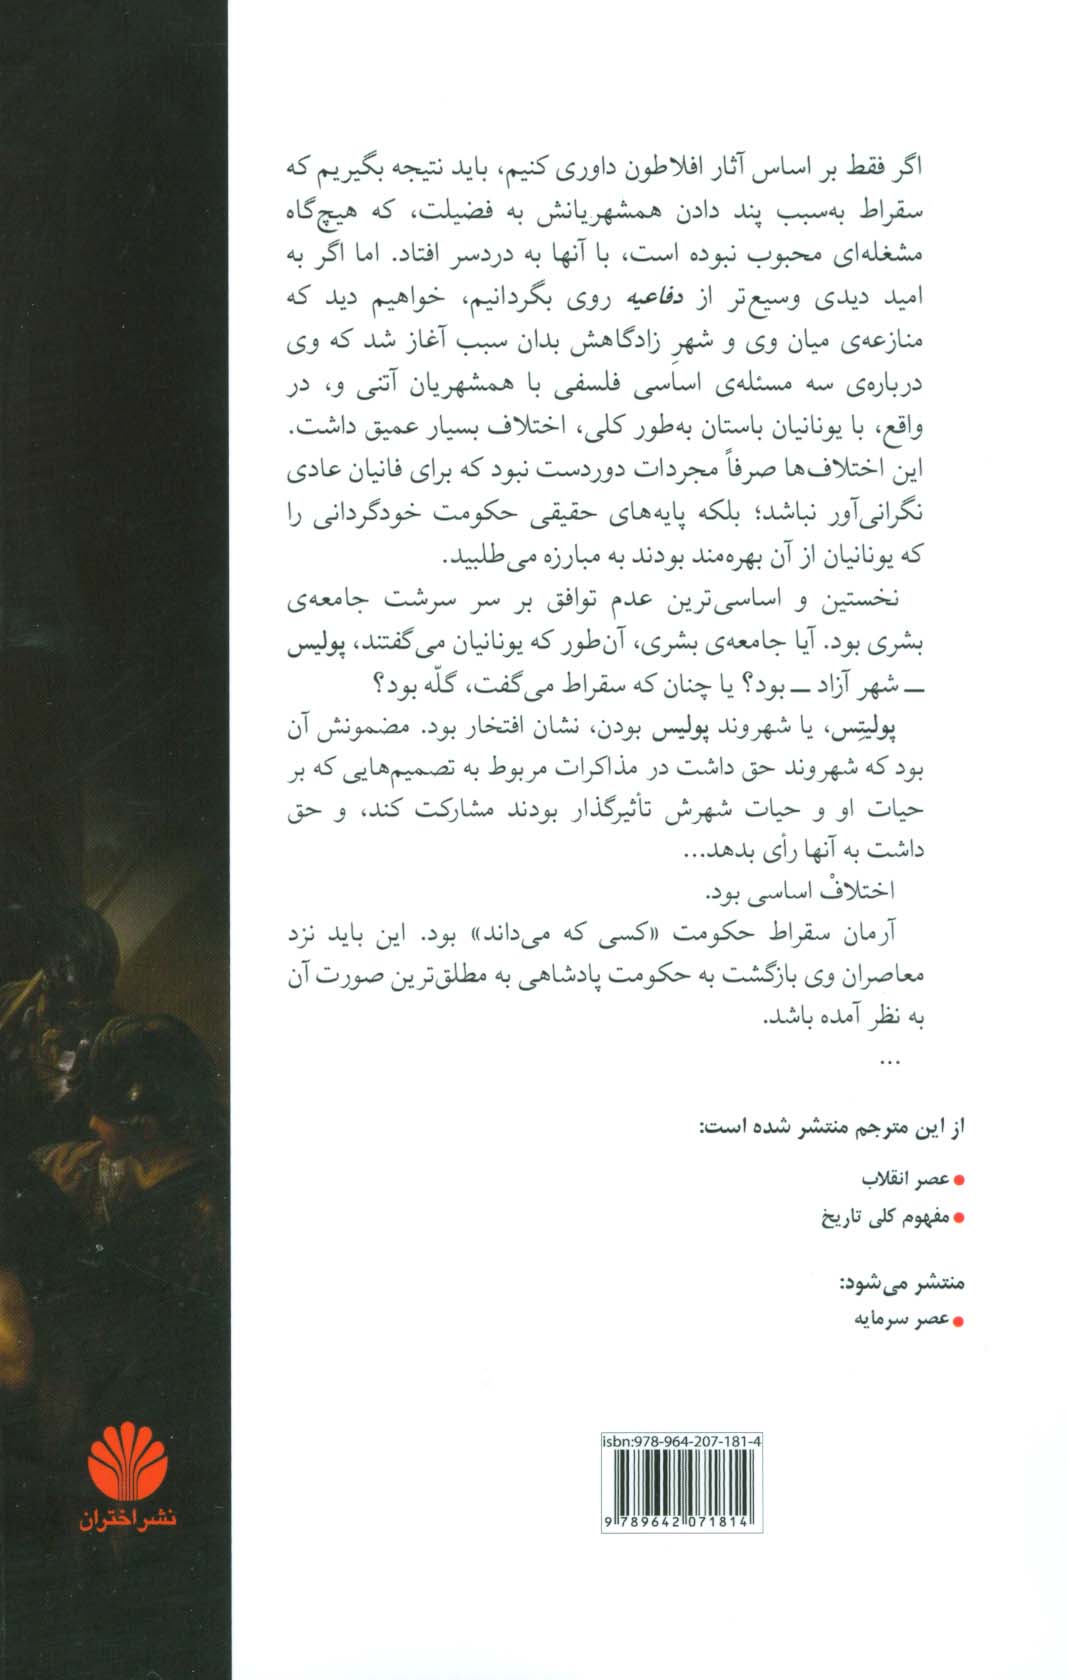 اگر فقط بر اساس آثار افلاطون داوری کنیم، باید نتیجه بگیریم که
سقراط به‌سبب پند دادن همشهریانش به فضیلت، که هیچ‌گاه
مشغله‌ای محبوب نبوده است، با آنها به دردسر افتاد. اما اگر به
امید دیدی وسیع‌تر از دفاعیه روی بگردانیم، خواهیم دید که
منازعه‌ی میان وی و شهرِ زادگاهش بدان سبب آغاز شد که وی
درباره‌ی سه مسئله‌ی اساسی فلسفی با همشهریان آتنی و، در
واقع، با یونانیان باستان به‌طور کلی، اختلاف بسیار عمیق داشت.
این اختلاف‌ها صرفاً مجردات دوردست نبود که برای فانیان عادی
نگرانی‌آور نباشد؛ بلکه پایه‌های حقیقی حکومت خودگردانی را
که یونانیان از آن بهره‌مند بودند به مبارزه می‌طلبید.
نخستین و اساسی‌ترین عدم توافق بر سر سرشت جامعه‌ی
بشری بود. آیا جامعه‌ی بشری، آن‌طور که یونانیان می‌گفتند، پولیس
ــ شهر آزاد ــ بود؟ یا چنان که سقراط می‌گفت، گلّه بود؟
پولیتِس، یا شهروند پولیس بودن، نشان افتخار بود. مضمونش آن
بود که شهروند حق داشت در مذاکرات مربوط به تصمیم‌هایی که بر
حیات او و حیات شهرش تأثیرگذار بودند مشارکت کند، و حق
داشت به آنها رأی بدهد...
اختلافْ اساسی بود.
آرمان سقراط حکومت «کسی که می‌داند» بود. این باید نزد
معاصران وی بازگشت به حکومت پادشاهی به مطلق‌ترین صورت آن
به نظر آمده باشد.
...
از این مترجم منتشر شده است:
• عصر انقلاب
• مفهوم کلی تاریخ
منتشر می‌شود:
• عصر سرمایه
isbn:978-964-207-181-4
9 789642 071814
نشر اختران